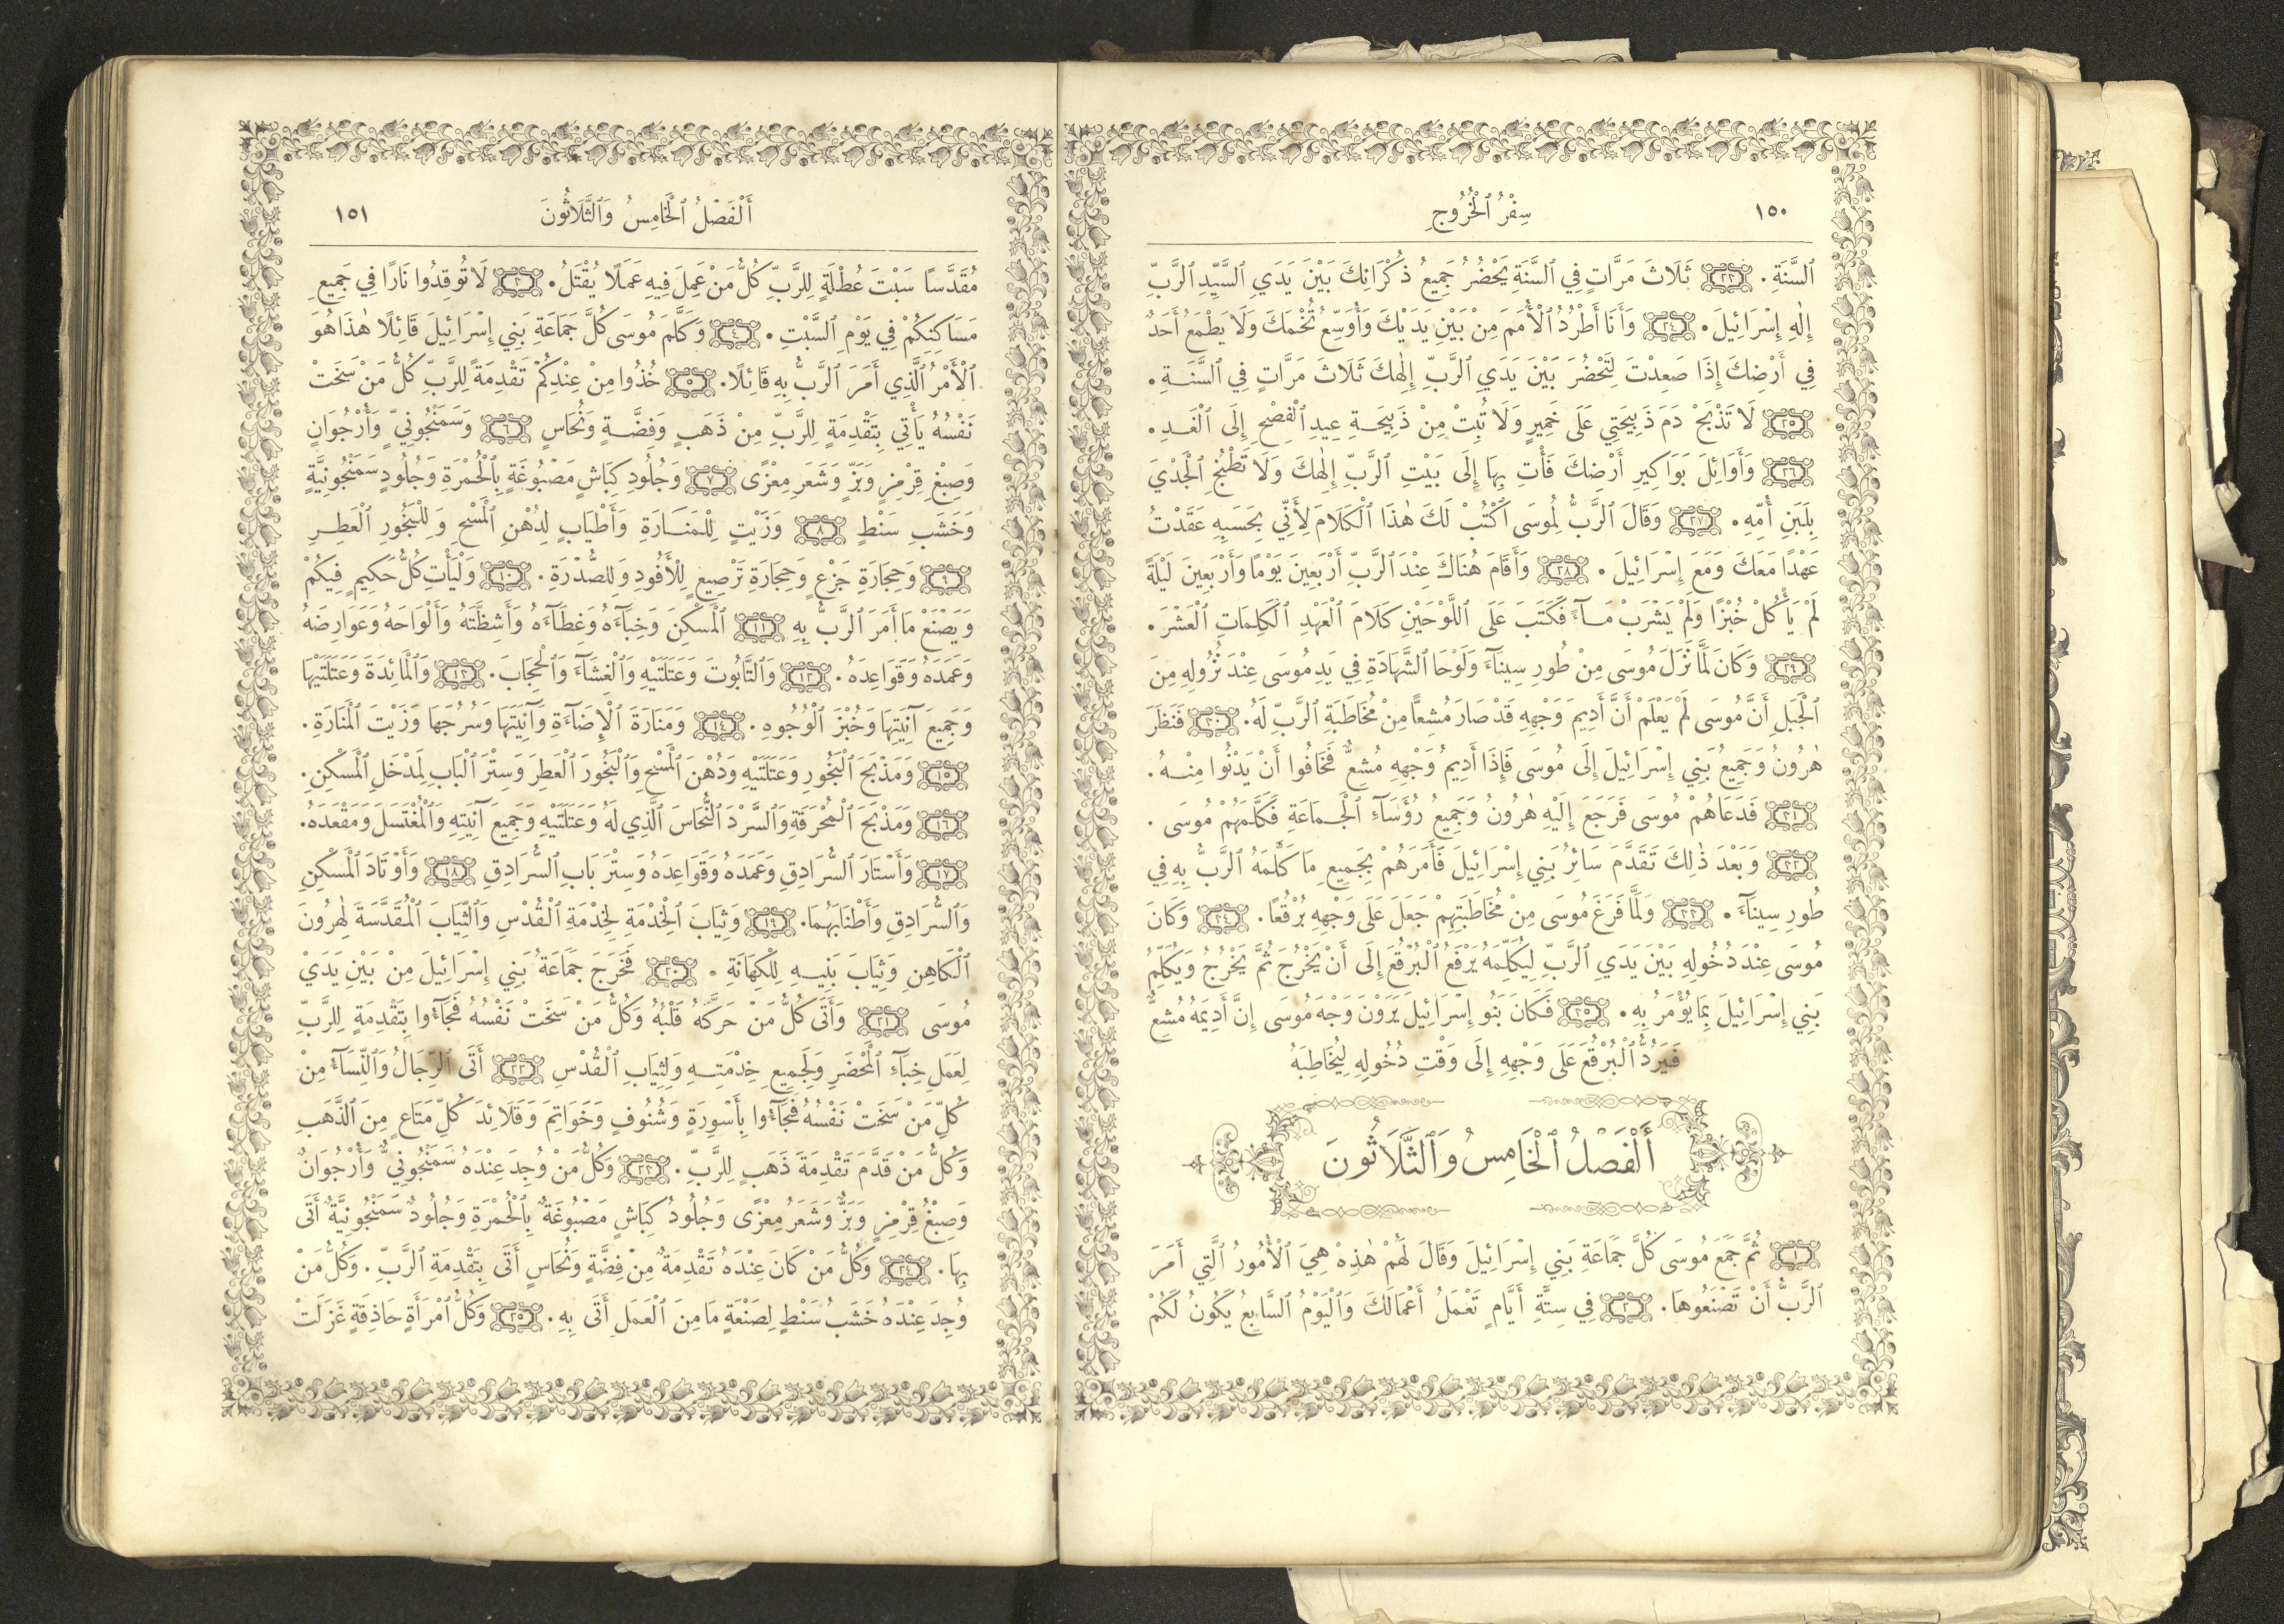 ١٥٠
سِفْرُ ٱلْخُرُوجِ
ٱلسَّنَةِ. ٢٣ ثَلَاثَ مَرَّاتٍ فِي ٱلسَّنَةِ يَحْضُرُ جَمِيعُ ذُكْرَانِكَ بَيْنَ يَدَيِ ٱلسَّيِّدِ ٱلرَّبِّ
إِلٰهِ إِسْرَائِيلَ. ٢٤ وَأَنَا أَطْرُدُ ٱلْأُمَمَ مِنْ بَيْنِ يَدَيْكَ وَأُوَسِّعُ تُخْمَكَ وَلَا يَطْمَعُ أَحَدٌ
فِي أَرْضِكَ إِذَا صَعِدْتَ لِتَحْضُرَ بَيْنَ يَدَيِ ٱلرَّبِّ إِلٰهِكَ ثَلَاثَ مَرَّاتٍ فِي ٱلسَّنَةِ.
٢٥ لَا تَذْبَحْ دَمَ ذَبِيحَتِي عَلَى خَمِيرٍ وَلَا تُبِتْ مِنْ ذَبِيحَةِ عِيدِ ٱلْفِصْحِ إِلَى ٱلْغَدِ.
٢٦ وَأَوَائِلَ بَوَاكِيرِ أَرْضِكَ فَأْتِ بِهَا إِلَى بَيْتِ ٱلرَّبِّ إِلٰهِكَ وَلَا تَطْبُخِ ٱلْجَدْيَ
بِلَبَنِ أُمِّهِ. ٢٧ وَقَالَ ٱلرَّبُّ لِمُوسَى ٱكْتُبْ لَكَ هٰذَا ٱلْكَلَامَ لِأَنِّي بِحَسَبِهِ عَقَدْتُ
عَهْدًا مَعَكَ وَمَعَ إِسْرَائِيلَ. ٢٨ وَأَقَامَ هُنَاكَ عِنْدَ ٱلرَّبِّ أَرْبَعِينَ يَوْمًا وَأَرْبَعِينَ لَيْلَةً
لَمْ يَأْكُلْ خُبْزًا وَلَمْ يَشْرَبْ مَآءً فَكَتَبَ عَلَى ٱللَّوْحَيْنِ كَلَامَ ٱلْعَهْدِ ٱلْكَلِمَاتِ ٱلْعَشْرَ.
٢٩ وَكَانَ لَمَّا نَزَلَ مُوسَى مِنْ طُورِ سِينَآءَ وَلَوْحَا ٱلشَّهَادَةِ فِي يَدِ مُوسَى عِنْدَ نُزُولِهِ مِنَ
ٱلْجَبَلِ أَنَّ مُوسَى لَمْ يَعْلَمْ أَنَّ أَدِيمَ وَجْهِهِ قَدْ صَارَ مُشِعًّا مِنْ مُخَاطَبَةِ ٱلرَّبِّ لَهُ. ٣٠ فَنَظَرَ
هٰرُونُ وَجَمِيعُ بَنِي إِسْرَائِيلَ إِلَى مُوسَى فَإِذَا أَدِيمُ وَجْهِهِ مُشِعٌّ فَخَافُوا أَنْ يَدْنُوا مِنْهُ.
٣١ فَدَعَاهُمْ مُوسَى فَرَجَعَ إِلَيْهِ هٰرُونُ وَجَمِيعُ رُؤَسَآءِ ٱلْجَمَاعَةِ فَكَلَّمَهُمْ مُوسَى.
٣٢ وَبَعْدَ ذٰلِكَ تَقَدَّمَ سَائِرُ بَنِي إِسْرَائِيلَ فَأَمَرَهُمْ بِجَمِيعِ مَا كَلَّمَهُ ٱلرَّبُّ بِهِ فِي
طُورِ سِينَآءَ. ٣٣ وَلَمَّا فَرَغَ مُوسَى مِنْ مُخَاطَبَتِهِمْ جَعَلَ عَلَى وَجْهِهِ بُرْقُعًا. ٣٤ وَكَانَ
مُوسَى عِنْدَ دُخُولِهِ بَيْنَ يَدَيِ ٱلرَّبِّ لِيُكَلِّمَهُ يَرْفَعُ ٱلْبُرْقُعَ إِلَى أَنْ يَخْرُجَ ثُمَّ يَخْرُجُ وَيُكَلِّمُ
بَنِي إِسْرَائِيلَ بِمَا يُؤْمَرُ بِهِ. ٣٥ فَكَانَ بَنُو إِسْرَائِيلَ يَرَوْنَ وَجْهَ مُوسَى إِنَّ أَدِيمَهُ مُشِعٌّ
فَيَرُدُّ ٱلْبُرْقُعَ عَلَى وَجْهِهِ إِلَى وَقْتِ دُخُولِهِ لِيُخَاطِبَهُ
أَلْفَصْلُ ٱلْخَامِسُ وَٱلثَّلَاثُونَ
١ ثُمَّ جَمَعَ مُوسَى كُلَّ جَمَاعَةِ بَنِي إِسْرَائِيلَ وَقَالَ لَهُمْ هٰذِهْ هِيَ ٱلْأُمُورُ ٱلَّتِي أَمَرَ
ٱلرَّبُّ أَنْ تَصْنَعُوهَا. ٢ فِي سِتَّةِ أَيَّامٍ تَعْمَلُ أَعْمَالَكَ وَٱلْيَوْمُ ٱلسَّابِعُ يَكُونُ لَكُمْ
أَلْفَصْلُ ٱلْخَامِسُ وَٱلثَّلَاثُونَ
١٥١
مُقَدَّسًا سَبْتَ عُطْلَةٍ لِلرَّبِّ كُلُّ مَنْ عَمِلَ فِيهِ عَمَلًا يُقْتَلُ. ٣ لَا تُوقِدُوا نَارًا فِي جَمِيعِ
مَسَاكِنِكُمْ فِي يَوْمِ ٱلسَّبْتِ. ٤ وَكَلَّمَ مُوسَى كُلَّ جَمَاعَةِ بَنِي إِسْرَائِيلَ قَائِلًا هٰذَا هُوَ
ٱلْأَمْرُ ٱلَّذِي أَمَرَ ٱلرَّبُّ بِهِ قَائِلًا. ٥ خُذُوا مِنْ عِنْدِكُمْ تَقْدِمَةً لِلرَّبِّ كُلُّ مَنْ سَخَتْ
نَفْسُهُ يَأْتِي بِتَقْدِمَةٍ لِلرَّبِّ مِنْ ذَهَبٍ وَفِضَّةٍ وَنُحَاسٍ ٦ وَسَمَنْجُونِيٍّ وَأُرْجُوَانٍ
وَصِبْغِ قِرْمِزٍ وَبَزٍّ وَشَعَرِ مِعْزًى ٧ وَجُلُودِ كِبَاشٍ مَصْبُوغَةٍ بِٱلْحُمْرَةِ وَجُلُودٍ سَمَنْجُونِيَّةٍ
وَخَشَبِ سَنْطٍ ٨ وَزَيْتٍ لِلْمَنَارَةِ وَأَطْيَابٍ لِدُهْنِ ٱلْمَسْحِ وَلِلْبَخُورِ ٱلْعَطِرِ
٩ وَحِجَارَةِ جَزْعٍ وَحِجَارَةِ تَرْصِيعٍ لِلْأَفُودِ وَلِلصُّدْرَةِ. ١٠ وَلْيَأْتِ كُلُّ حَكِيمٍ فِيكُمْ
وَيَصْنَعْ مَا أَمَرَ ٱلرَّبُّ بِهِ ١١ ٱلْمَسْكِنَ وَخِبَآءَهُ وَغِطَآءَهُ وَأَشِظَّتَهُ وَأَلْوَاحَهُ وَعَوَارِضَهُ
وَعَمَدَهُ وَقَوَاعِدَهُ. ١٢ وَٱلتَّابُوتَ وَعَتَلَتَيْهِ وَٱلْغِشَآءَ وَٱلْحِجَابَ. ١٣ وَٱلْمَائِدَةَ وَعَتَلَتَيْهَا
وَجَمِيعَ آنِيَتِهَا وَخُبْزَ ٱلْوُجُوهِ. ١٤ وَمَنَارَةَ ٱلْإِضَآءَةِ وَآنِيَتَهَا وَسُرُجَهَا وَزَيْتَ ٱلْمَنَارَةِ.
١٥ وَمَذْبَحَ ٱلْبَخُورِ وَعَتَلَتَيْهِ وَدُهْنَ ٱلْمَسْحِ وَٱلْبَخُورَ ٱلْعَطِرَ وَسِتْرَ ٱلْبَابِ لِمَدْخَلِ ٱلْمَسْكِنِ.
١٦ وَمَذْبَحَ ٱلْمُحْرَقَةِ وَٱلسَّرْدَ ٱلنُّحَاسَ ٱلَّذِي لَهُ وَعَتَلَتَيْهِ وَجَمِيعَ آنِيَتِهِ وَٱلْمُغْتَسَلَ وَمَقْعَدَهُ.
١٧ وَأَسْتَارَ ٱلسُّرَادِقِ وَعَمَدَهُ وَقَوَاعِدَهُ وَسِتْرَ بَابِ ٱلسُّرَادِقِ ١٨ وَأَوْتَادَ ٱلْمَسْكِنِ
وَٱلسُّرَادِقِ وَأَطْنَابَهُمَا. ١٩ وَثِيَابَ ٱلْخِدْمَةِ لِخِدْمَةِ ٱلْقُدْسِ وَٱلثِّيَابَ ٱلْمُقَدَّسَةَ لِهٰرُونَ
ٱلْكَاهِنِ وَثِيَابَ بَنِيهِ لِلْكَهَانَةِ. ٢٠ فَخَرَجَ جَمَاعَةُ بَنِي إِسْرَائِيلَ مِنْ بَيْنِ يَدَيْ
مُوسَى ٢١ وَأَتَى كُلُّ مَنْ حَرَّكَهُ قَلْبُهُ وَكُلُّ مَنْ سَخَتْ نَفْسُهُ فَجَآءُوا بِتَقْدِمَةٍ لِلرَّبِّ
لِعَمَلِ خِبَآءِ ٱلْمَحْضَرِ وَلِجَمِيعِ خِدْمَتِهِ وَلِثِيَابِ ٱلْقُدْسِ ٢٢ أَتَى ٱلرِّجَالُ وَٱلنِّسَآءُ مِنْ
كُلِّ مَنْ سَخَتْ نَفْسُهُ فَجَآءُوا بِأَسْوِرَةٍ وَشُنُوفٍ وَخَوَاتِمَ وَقَلَائِدَ كُلِّ مَتَاعٍ مِنَ ٱلذَّهَبِ
وَكُلُّ مَنْ قَدَّمَ تَقْدِمَةَ ذَهَبٍ لِلرَّبِّ. ٢٣ وَكُلُّ مَنْ وُجِدَ عِنْدَهُ سَمَنْجُونِيٌّ وَأُرْجُوَانٌ
وَصِبْغُ قِرْمِزٍ وَبَزٌّ وَشَعَرُ مِعْزًى وَجُلُودُ كِبَاشٍ مَصْبُوغَةٌ بِٱلْحُمْرَةِ وَجُلُودٌ سَمَنْجُونِيَّةٌ أَتَى
بِهَا. ٢٤ وَكُلُّ مَنْ كَانَ عِنْدَهُ تَقْدِمَةٌ مِنْ فِضَّةٍ وَنُحَاسٍ أَتَى بِتَقْدِمَةِ ٱلرَّبِّ. وَكُلُّ مَنْ
وُجِدَ عِنْدَهُ خَشَبُ سَنْطٍ لِصَنْعَةٍ مَا مِنَ ٱلْعَمَلِ أَتَى بِهِ. ٢٥ وَكُلُّ ٱمْرَأَةٍ حَاذِقَةٍ غَزَلَتْ